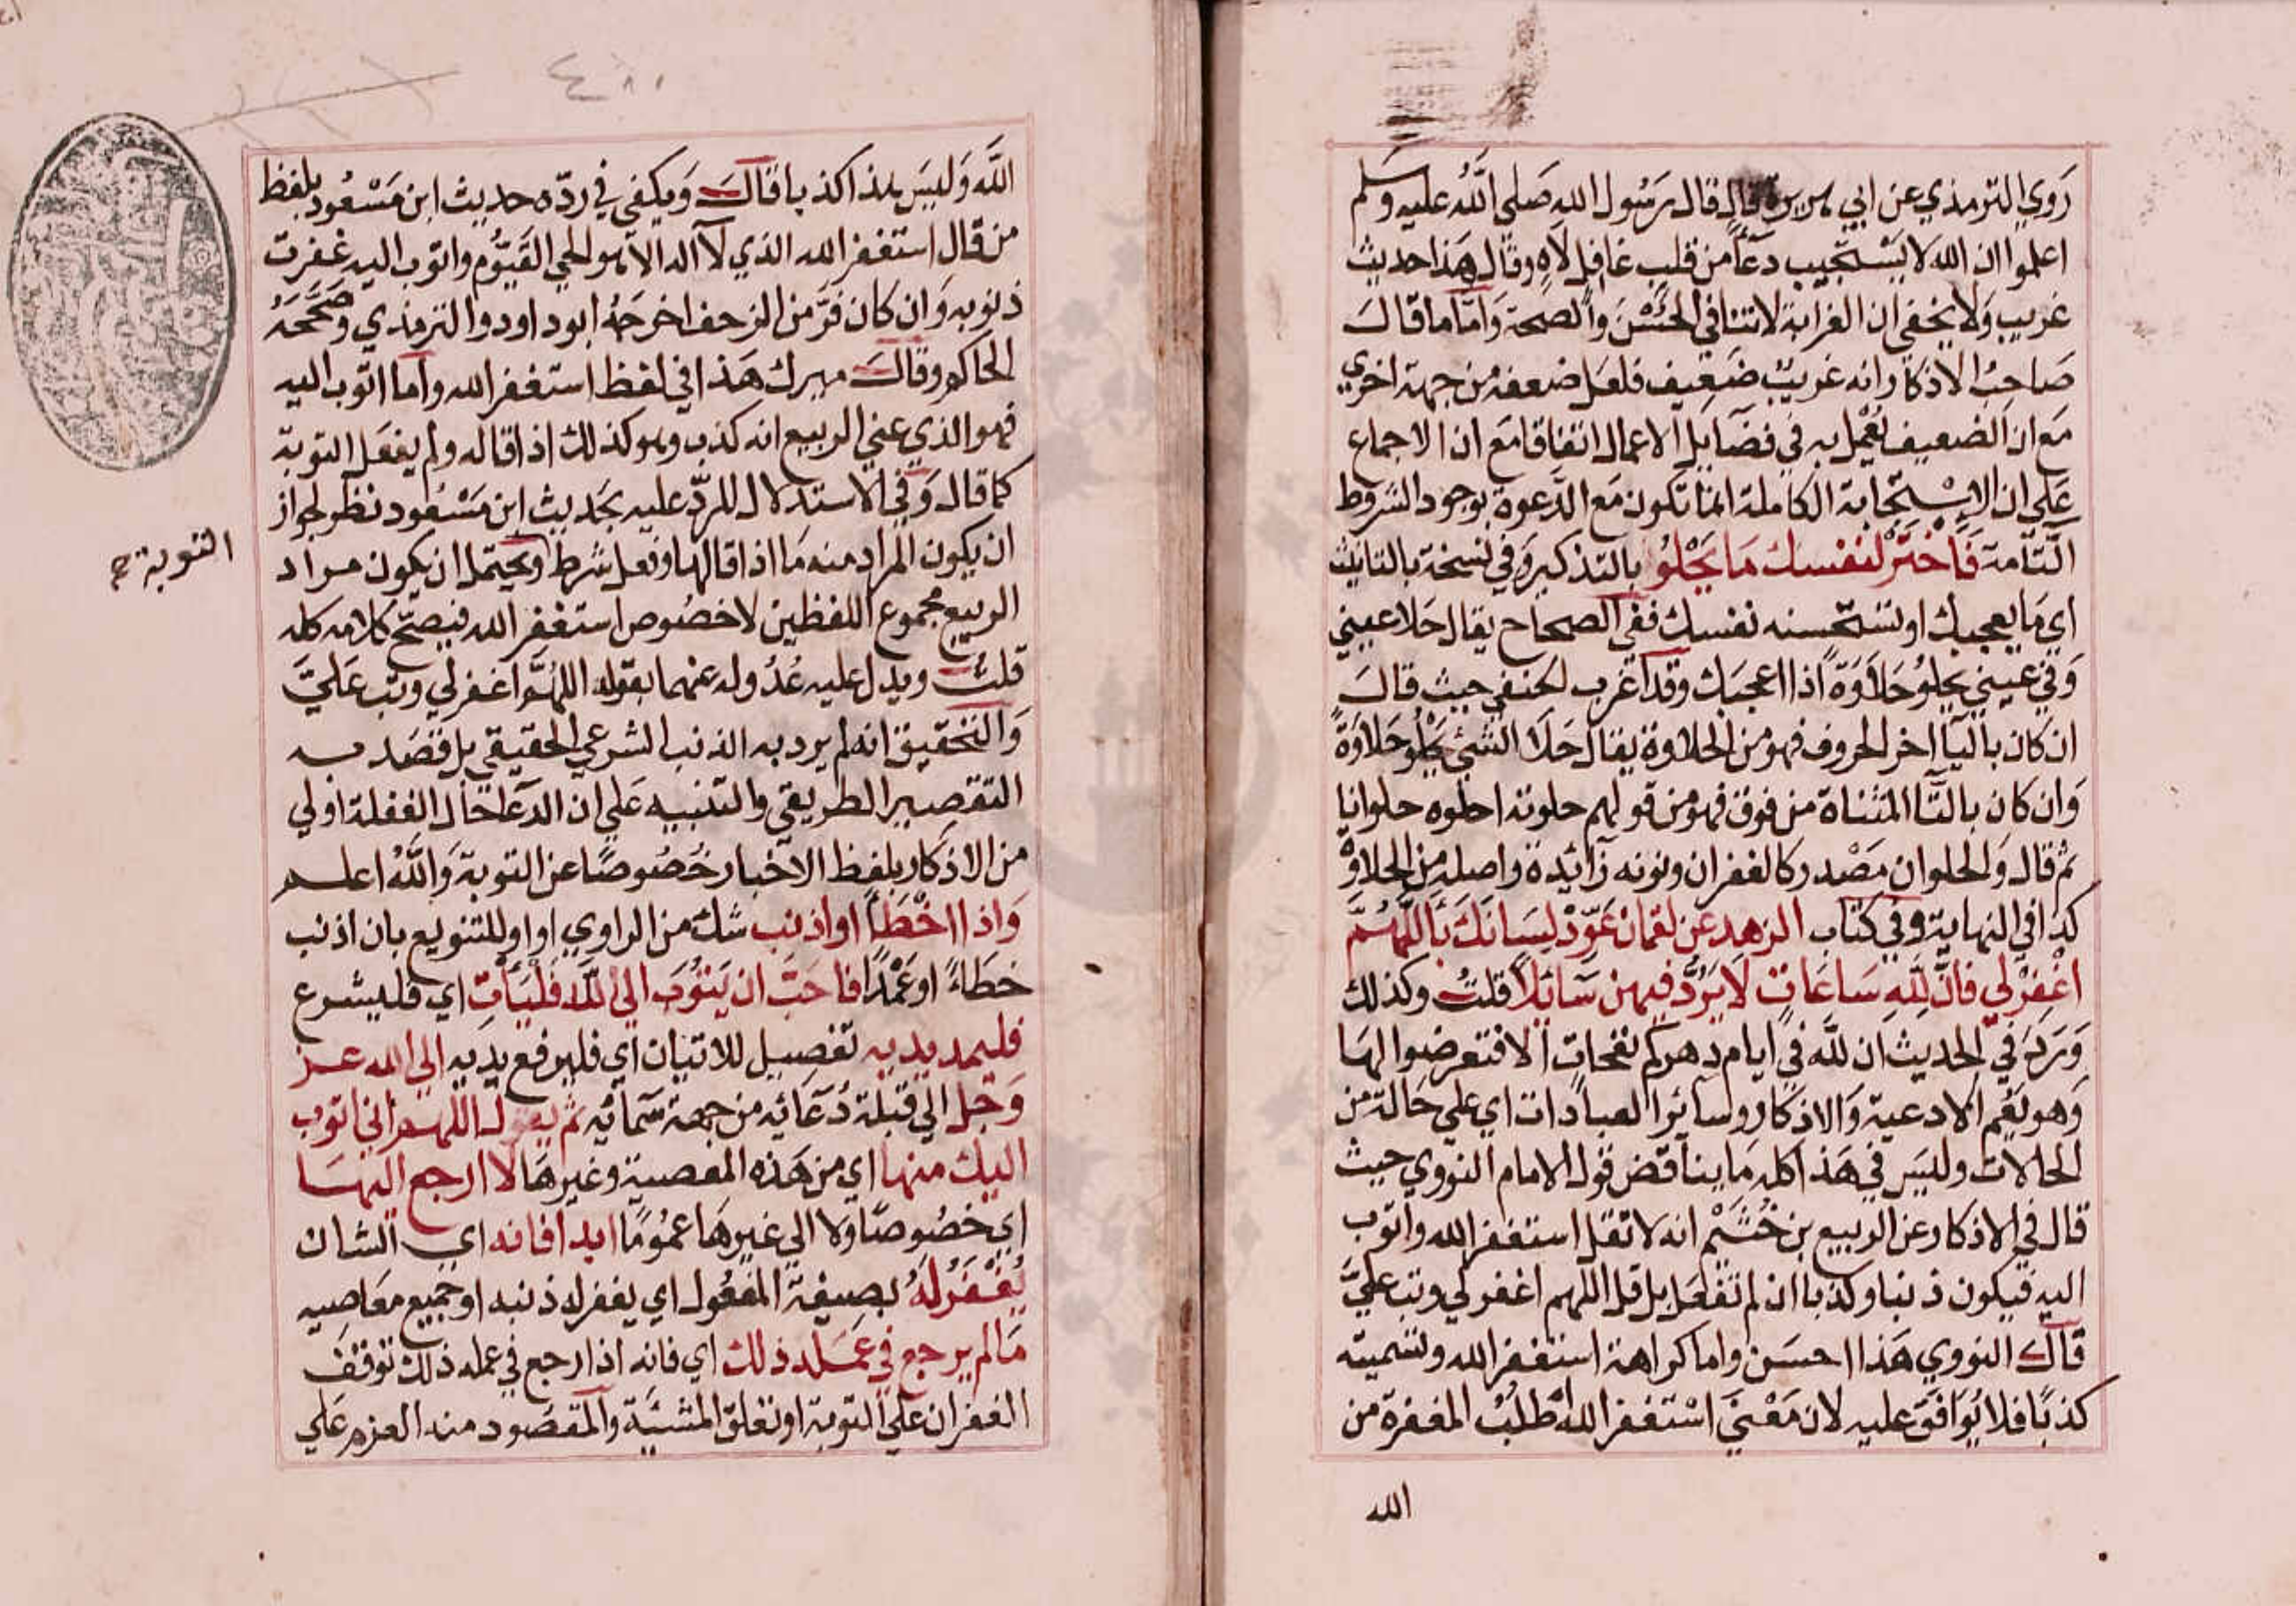 رَوي الترمذي عن ابي هريرة قال قال رَسُول الله صَلي اللَّه عليه وسلم
اعلموا ان الله لا يَسْتجيب دعَاً من قلب غافِل لاَهٍ وقال هَذا حديث
غريب وَلا يخفي ان الغرابة لا تنافي الحُسْنَ والصحة وَامَّا ما قالَ
صَاحبُ الاذكار انه غريبٌ ضَعِيف فلعَل ضعفه من جهة اخري
مَع ان الضعيف يُعْمل به في فضَايل الاعمال اتفاقا مَع ان الاجماع
عَلي ان الاِسْتجابة الكاملة انما تكون مَع الدَّعوة بوجود الشروط
التَّامة فَاخْتَرْ لنفسك مَا يَحْلوُ بالتذكير وَفي نسخة بالتانيث
اي مَا يعجبك او تسْتحْسنه نفسك ففي الصحاح يقال حَلا عيني
وَفي عيني يحلوُ حَلاَوَةً اذا اعجبَك وقد اغرب الحنفي حيث قالَ
ان كان باليَا اخر الحروف فهو من الحلاوة يقال حَلَا الشئ يَحْلُو حَلاَوَةً
وَان كان بالتَّا المثناة من فوق فهو من قولهم حلوته احلوه حلوانا
ثم قال وَالحلوان مَصْدر كالغفران ونونه زَائدة واصله من الحلاوَة
كذا في النهاية وفي كتاب الزهد عن لقمان عَوِّدْ لِسَانَكَ بِاَللَّهُمَّ
اغْفِرْلي فاِنَّ لِلَّهِ سَاعَاتٍ لاَ يَرُدُّ فيهن سَائلاً قلتُ وكذلك
وَرَدَ في الحديث ان للَّه في ايام دهركم نفحات الا فتعرضوا لهَا
وَهو يَعُم الادعية وَالاذكار وسَائر العبادات اي علي حَالة من
الحالات وليسَ في هَذا كله مَا يناقض قول الامام النووي حيث
قال في الاذكار وعن الربيع بن خُثَيْم انه لا تقل استغفر الله واتوب
اليه فيكون ذنبا وكذبا ان لم تفعَل بل قل اللهم اغفر لي وتب عليَّ
قالَ النووي هَذا احسَن واما كراهة استغفر الله وتسميته
كذبًا فلا يُوَافق عليه لان مَعْني اسْتغفر الله اطلبُ المغفرة من
الله
اللَّه وَليسَ هذا كذبا قالَ وَيكفي في ردّه حديث ابن مَسْعُود بلفظ
من قال استغفر الله الذي لا اله الا هو الحي القيُّوم واتوب اليه غفرت
ذنوبه وَان كان فرَّ من الزحف اخرجَهُ ابو داود والترمذي وصَحَّحَهُ
الحاكم وقالَ ميرك هَذا في لفظ استغفر الله واما اتوب اليه
فهو الذي عني الربيع انه كذب وهو كذلك اذا قاله ولم يفعَل التوبة
كما قال وَفي الاستدلال للردّ عليه بحَديث ابن مَسْعُود نظر لجواز
ان يكون المراد منه مَا اذا قالها وفعل شرط او يحتمل ان يكون مراد
التوبة صح
الربيع مجموع اللفظين لا خصُوص استغفر الله فيصحّ كلامه كله
قلتُ ويدل عليه عُدُوله عنهما بقوله اللهُمَّ اغفر لي وتب عَليَّ
وَالتحقيق انه لم يرد به الذنب الشرعي الحقيقي بل قصَد به
التقصير الطريقي والتنبيه عَلي ان الدعَا حَال الغفلة اولي
من الاذكار بلفظ الاخبار خُصُوصًا عن التوبة وَاللَّهُ اعلم
وَاذا اخْطَأ او اذنب شك من الراوي او او للتنويع بان اذنب
خطَاءً او عَمْدًا فاحَبَّ ان يَتُوبَ الي اللَّه فَلْيَأتِ اي فليشرع
فليمد يديه تفصيل للاتيان اي فليرفع يديه الي الله عز
وَجل الي قبلة دُعَائه من جهة سَمائه ثم يقول اللهم اني اتوب
اليك منها اي من هَذه المعصية وغيرهَا لا ارجع اليهَا
اي خصُوصًا وَلا الي غيرهَا عمُومًا ابدا فانه اي الشان
يُغْفَرُ لَهُ بصيغة المفعُول اي يغفر له ذنبه او جميع معَاصيه
مَالم يرجع في عَمَله ذلك اي فانه اذا رجع في عمله ذلك توقفَ
الغفران علي التوبة او تعلق المشيَّة وَالمقصَود منه العزم عَلي